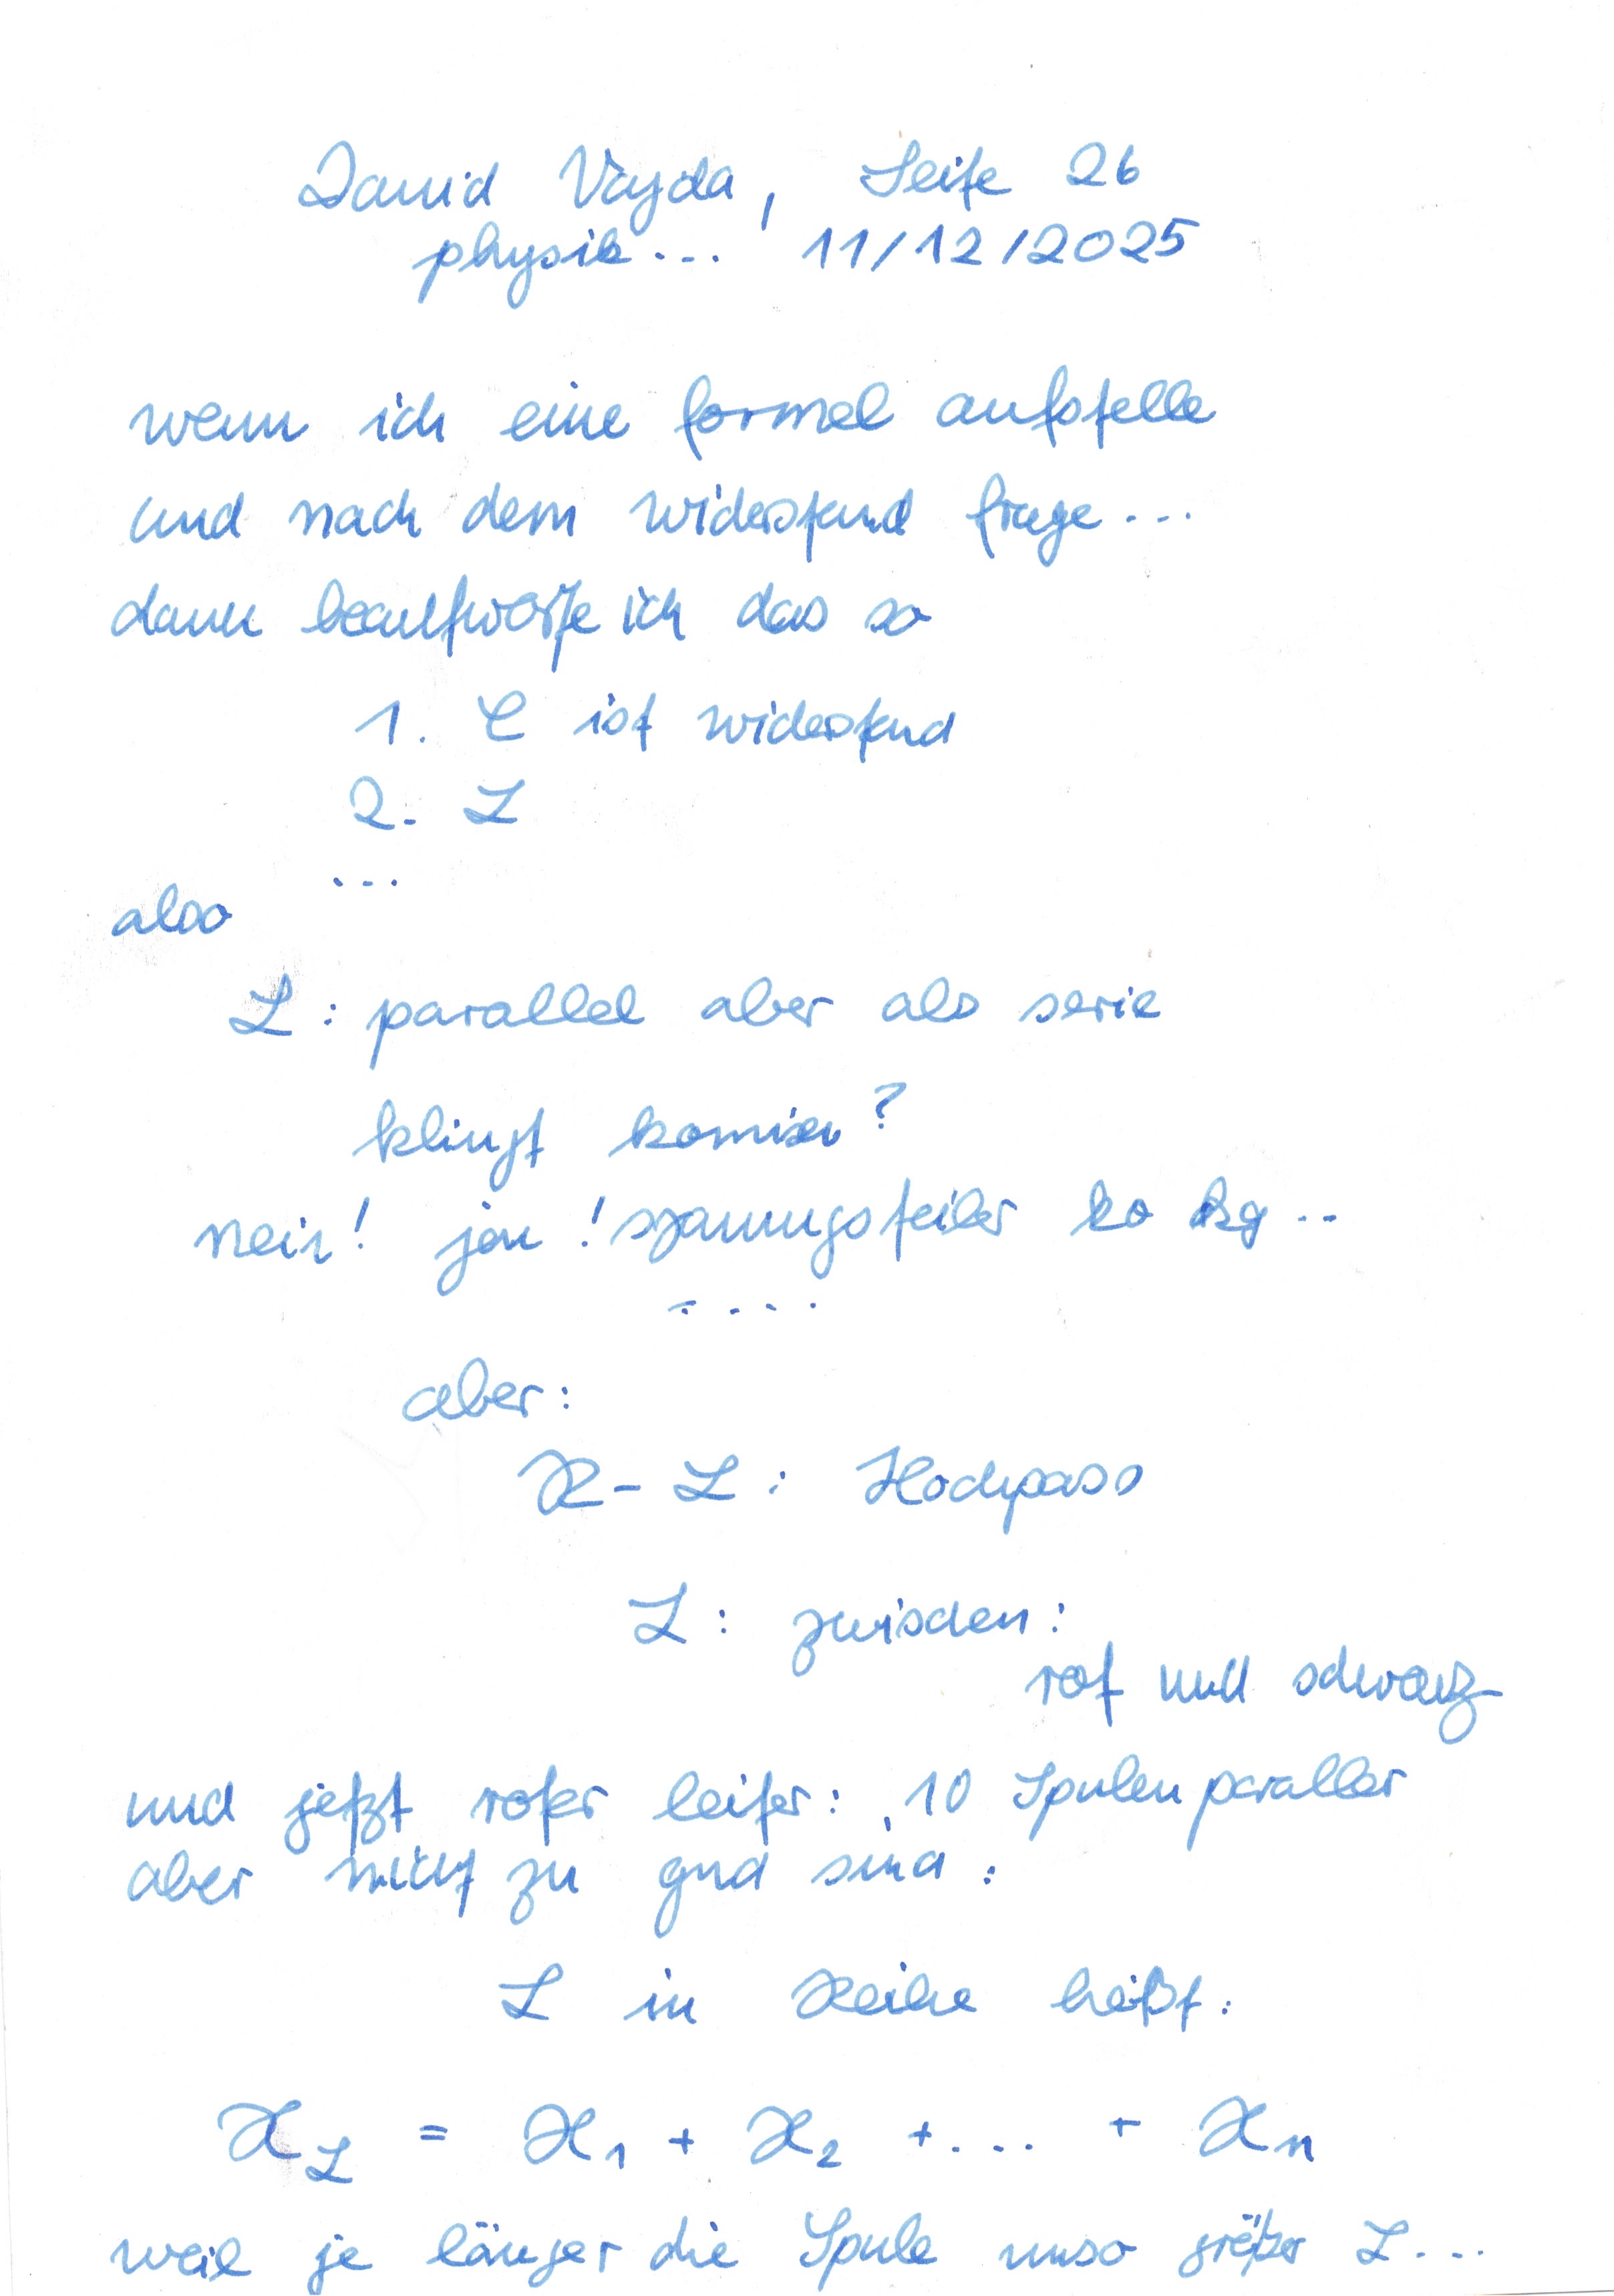 David Vajda, Seite 26
physik... 11/12/2025
wenn ich eine formel aufstelle
und nach dem widerstand frage...
dann beantworte ich das so
1. C ist widerstand
2. L
...
also
L: parallel aber als serie
klingt komisch?
nein! jein! spannungsteiler
....
aber:
R-L: Hochpass
L: zwischen:
rot und schwarz
und jetzt roter leiter: 10 Spulen parallel
aber nicht zu gnd sind:
L in Reihe heißt:
X_L = X_1 + X_2 + ... + X_n
weil je länger die Spule umso größer L...